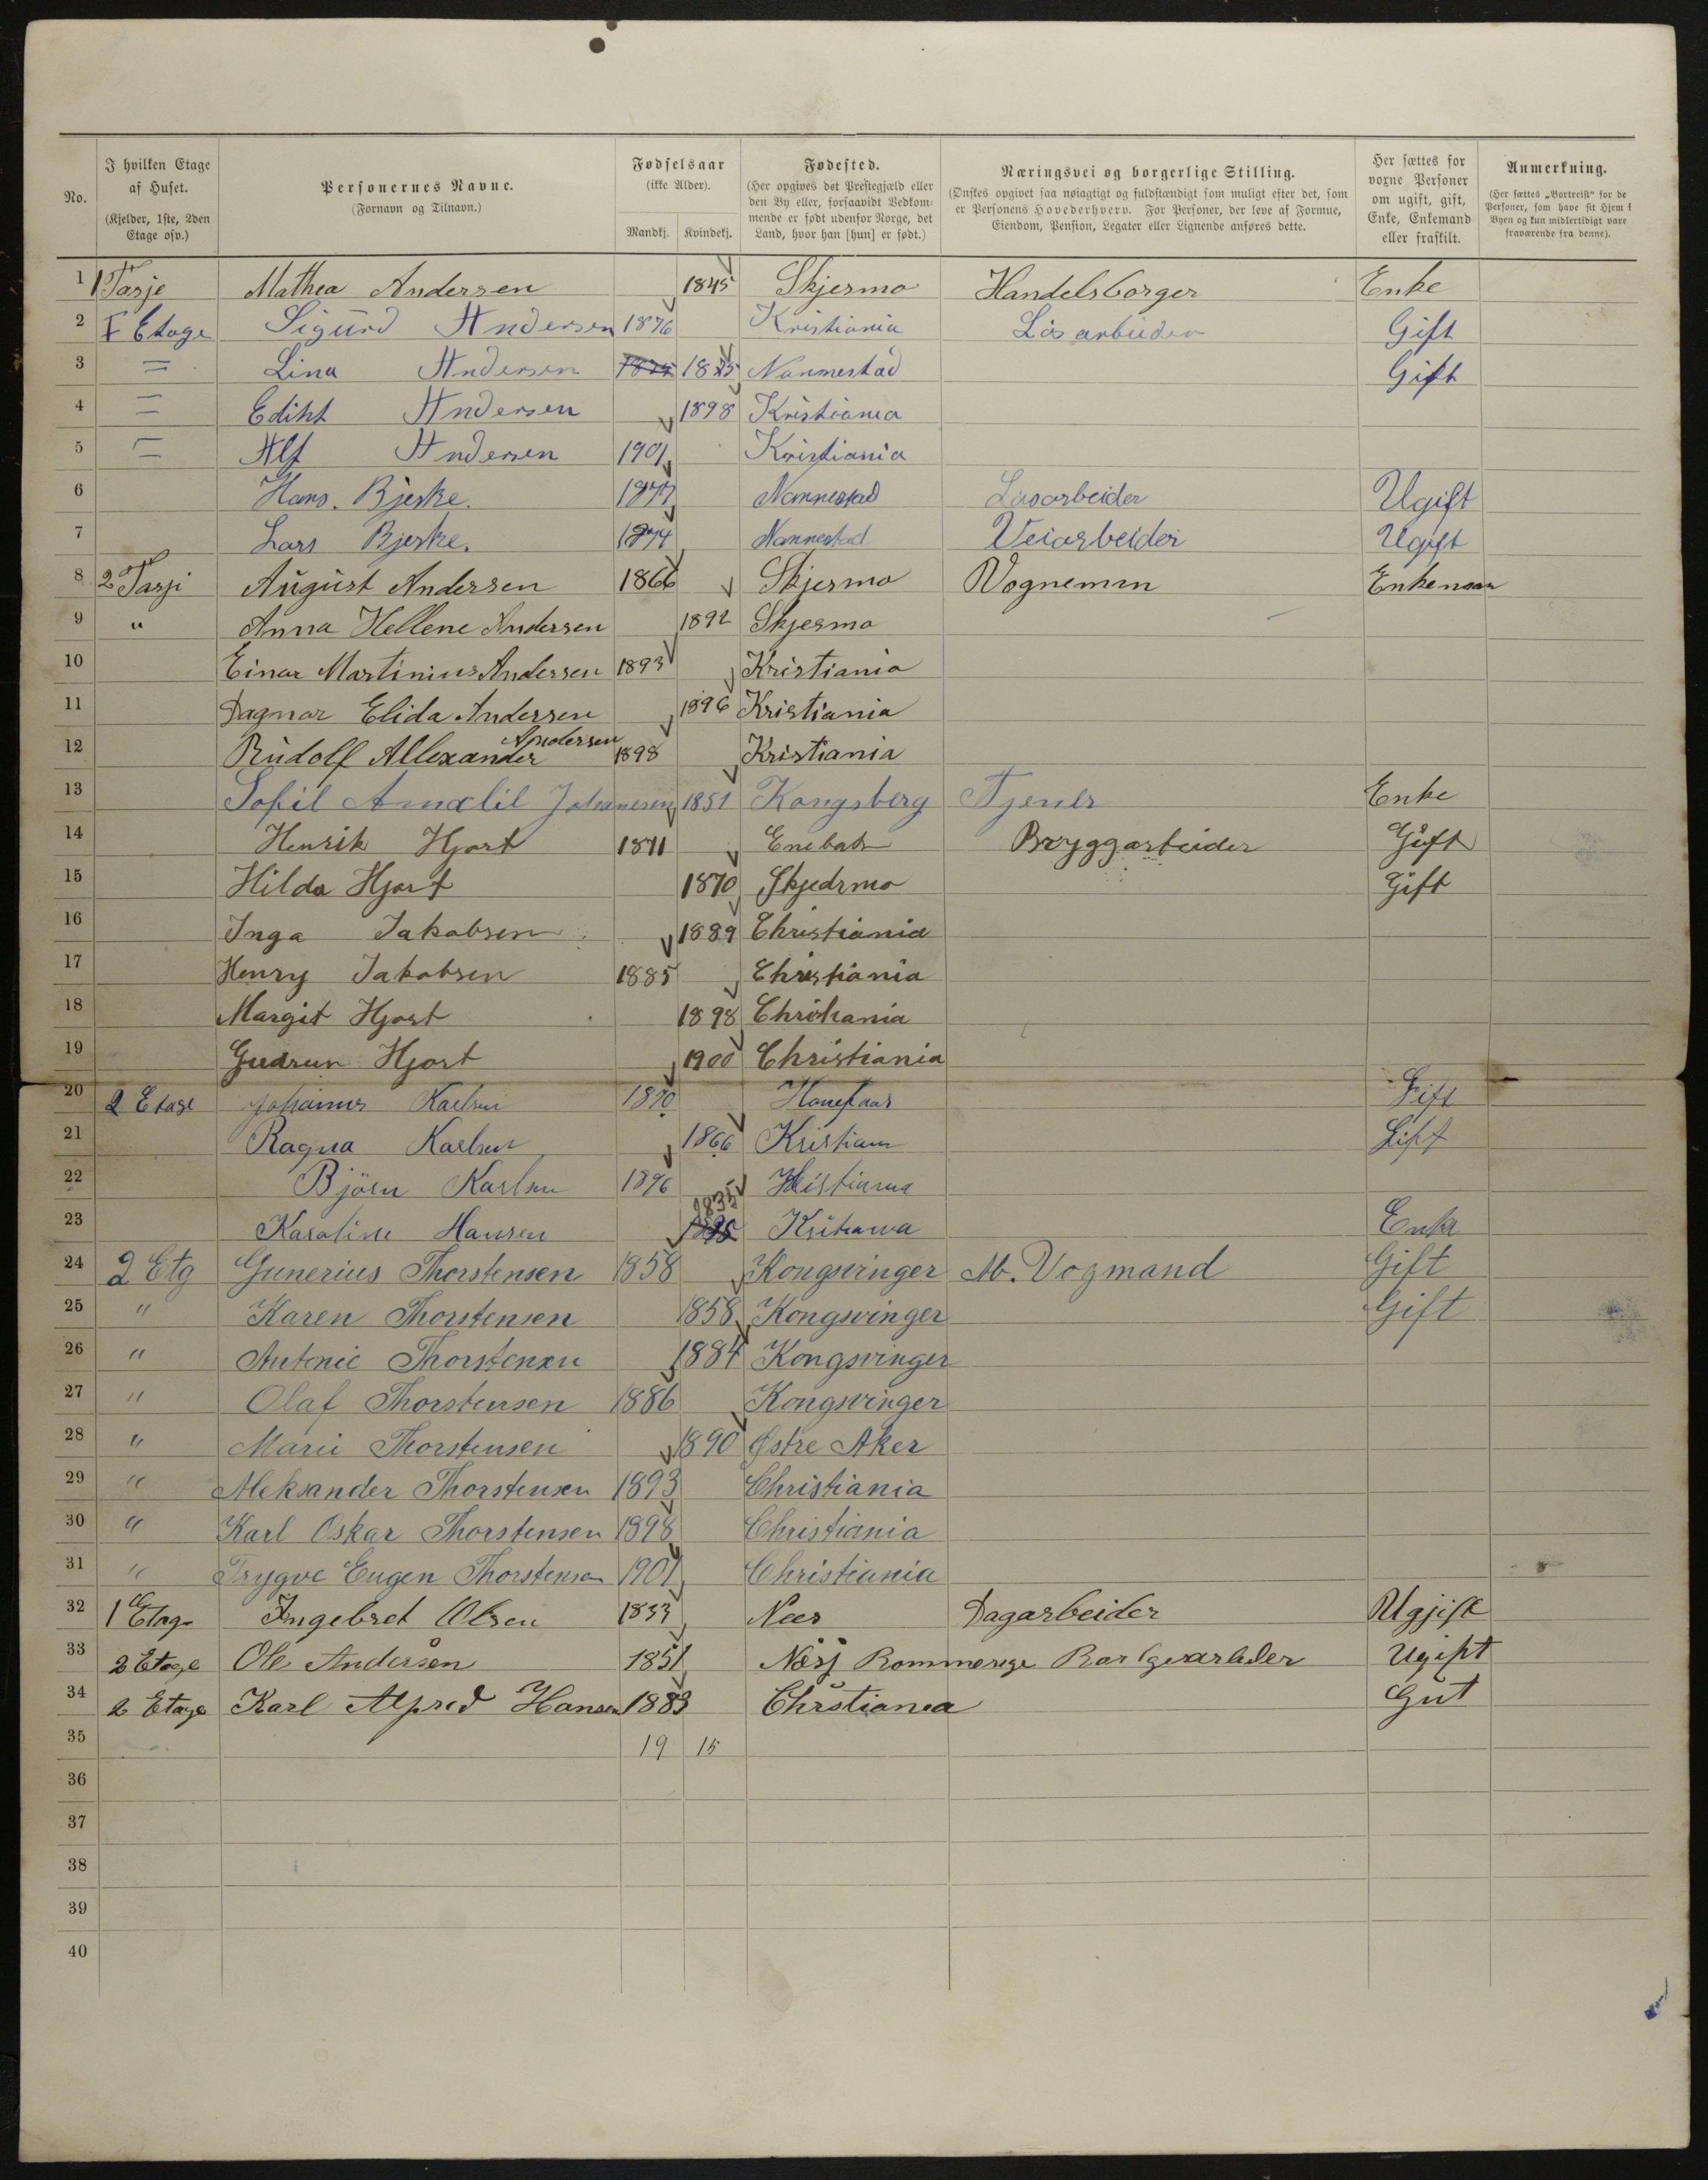 No. | I hvilken Etage af Huset. (Kjelder, 1ste, 2den Etage osv.) | Personernes Navne. (Fornavn og Tilnavn.) | Fødselsaar (ikke Alder). Mandkj. | Kvindekj. | Fødested. (Her opgives det Prestegjæld eller den By eller, forsaavidt Vedkommende er født udenfor Norge, det Land, hvor han [hun] er født.) | Næringsvei og borgerlige Stilling. (Ønskes opgivet saa nøiagtigt og fuldstændigt som muligt efter det, som er Personens Hovederhverv. For Personer, der leve af Formue, Eiendom, Pension, Legater eller Lignende anføres dette.) | Her sættes for voxne Personer om ugift, gift, Enke, Enkemand eller fraskilt. | Anmerkning. (Her sættes „Bortreist“ for de Personer, som have sit Hjem i Byen og kun midlertidigt vare fraværende fra denne).
1 1 Tasje Mathea Andersen 1845 Skjesmo Handelsborger Enke
2 I Etage Sigurd Andersen 1876 Kristiania Løs arbeider Gift
3 = Lina Andersen 1875 Nannestad Gift
4 = Ediht Andersen 1898 Kristiania
5 = Alf Andersen 1901 Kristiania
6 Hans. Bjerke. 1877 Nannestad Løsarbeider Ugift
7 Lars Bjerke. 1874 Nannestad Veiarbeider Ugift
8 2 Tasji August Andersen 1866 Skjesmo Vognemnn Enkeman
9 " Anna Hellene Andersen 1892 Skjesmo
10 Einar Martinius Andersen 1893 Kristiania
11 Dagmar Elida Andersen 1896 Kristiania
12 Rudolf Allexander Andersen 1898 Kristiania
13 Sofil Amalil Johannesen 1851 Kongsberg Tjener Enke
14 Henrik Hjort 1871 Enebak Bryggarbeider Gift
15 Hilda Hjort 1870 Skjedsmo Gift
16 Inga Jakobsen 1889 Christiania
17 Henry Jakobsen 1885 Christiania
18 Margit Hjort 1898 Christiania
19 Gudrun Hjort 1900 Christiania
20 2 Etage Johannes Karlsen 1870 Hønefos Gift
21 Ragna Karlsen 1866 Kristiania Gift
22 Bjørn Karlsen 1896 Kristiania
23 Karoline Hansen 1835 Kristiania Enke
24 2 Etg Gunerius Thorstensen 1858 Kongsvinger Vogmand Gift
25 " Karen Thorstensen 1858 Kongsvinger Gift
26 " Antonie Thorstensen 1884 Kongsvinger
27 " Olaf Thorstensen 1886 Kongsvinger
28 " Marie Thorstensen 1890 Østre Aker
29 " Aleksander Thorstensen 1893 Christiania
30 " Karl Oskar Thorstensen 1898 Christiania
31 " Trygve Eugen Thorstensen 1901 Christiania
32 1 Etage Ingebret Olsen 1833 Nes Dagarbeider Ugjift
33 2 Etage Ole Andersen 1851 Nesj Rommerige Ugift
34 2 Etage Karl Alfred Hansen 1883 Christiania
35 19 15
36
37
38
39
40